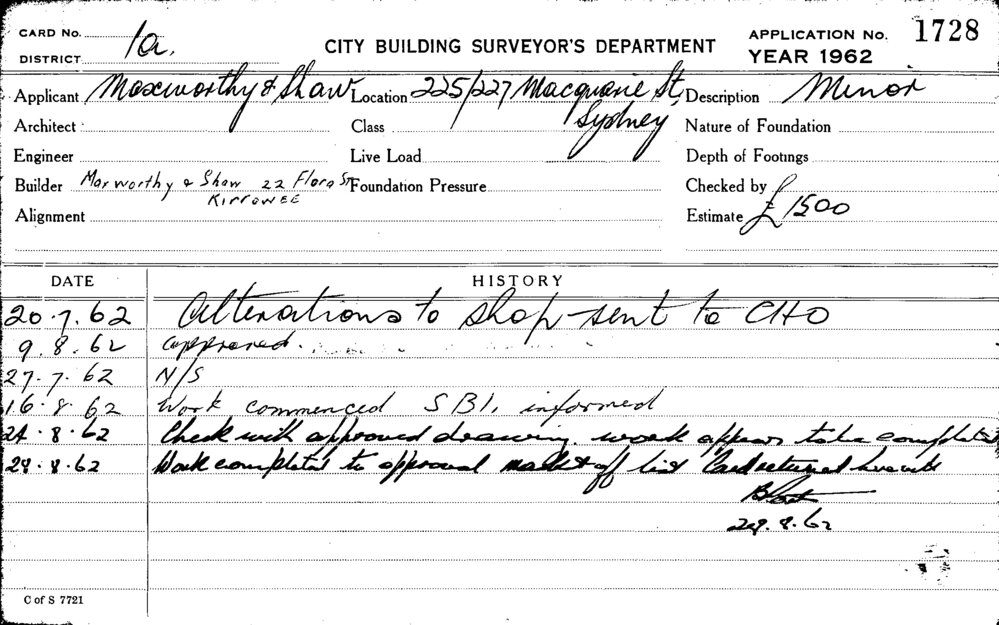 CARD No.
DISTRICT 1a.
CITY BUILDING SURVEYOR'S DEPARTMENT
APPLICATION No. 1728
YEAR 1962
Applicant Moxworthy & Shaw Location 225/227 Macquarie St, Description Minor
Sydney
Architect Class Nature of Foundation
Engineer Live Load Depth of Footings
Builder Moxworthy & Shaw 22 Flora St Foundation Pressure Checked by
KIRROWEE
Alignment Estimate £1500
DATE HISTORY
20.7.62 Alterations to shop sent to CHO
9.8.62 approved.
27.7.62 N/S
16.8.62 Work commenced SBI. informed
24.8.62 Check with approved drawing. work appears to be completed
28.8.62 Work completed to approval marked off list Card returned herewith
28.8.62
C of S 7721